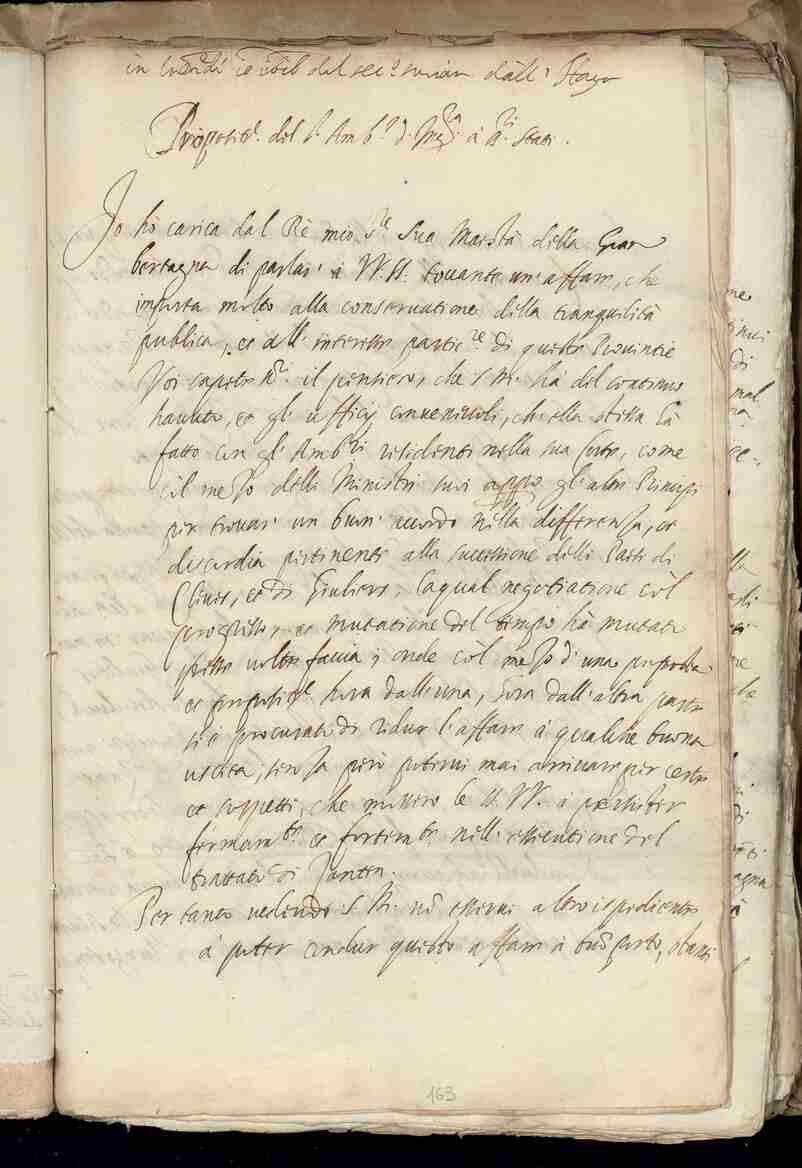 in dal sec.º surian dall' Haya
Propositᵉ. del S.ʳ Amb.ʳ d'Ingᵃ. à SSʳⁱ. Stati.
Io hò carica dal Rè mio S.ʳᵉ Sua Maestà della Gran
bertagna di parlar' à VV. SS. touante un' affare, che
importa molto alla conseruatione della tranquilità
publica, et all' interesse partic.ʳᵉ di queste Prouintie
Voi sapete SSʳⁱ. il pensiero, che S. M. hà del continuo
hauuto, et gl' ufficij conueneuoli, ch'ella stessa hà
fatto con gl' Amb.ʳⁱ residenti nella sua Corte, come
col mezo delli Ministri suoi appo gl'altri Principi
per trouar' un buon' accordo nella differenza, et
discordia pertinenti alla successione delli Paesi di
Cleues, et di Giuliers; laqual negotiatione còl
progresso, et mutatione del tempo hà mutata
spesse uolte faccia; onde còl mezo d'una proposta
et propositᵉ. hora dall'una, hora dall'altra parte
si è procurato di ridur l'affare à qualche buona
uscita; senza però poterui mai arriuare per certe
et sospetti, che mossero le SS. VV. à persister
fermamᵗᵉ. et fortemᵗᵉ. nell' essecutione del
trattato di Santen.
Per tanto uedendo S. M. nõ esserui altro ispediente
à poter condur questo affare à buõ porto, stanti
163